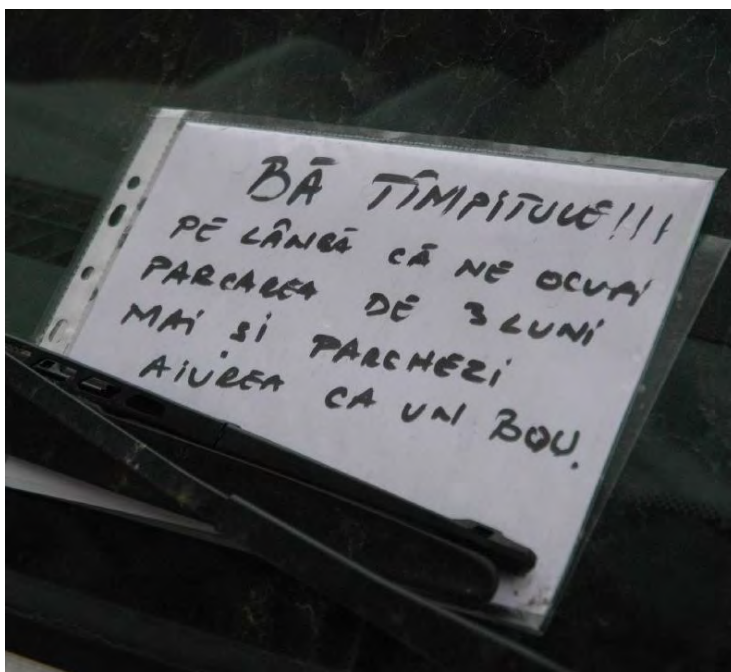 BĂ TÎMPITULE!!!
PE LÂNGĂ CĂ NE OCUPI
PARCAREA DE 3 LUNI
MAI ȘI PARCHEZI
AIUREA CA UN BOU.